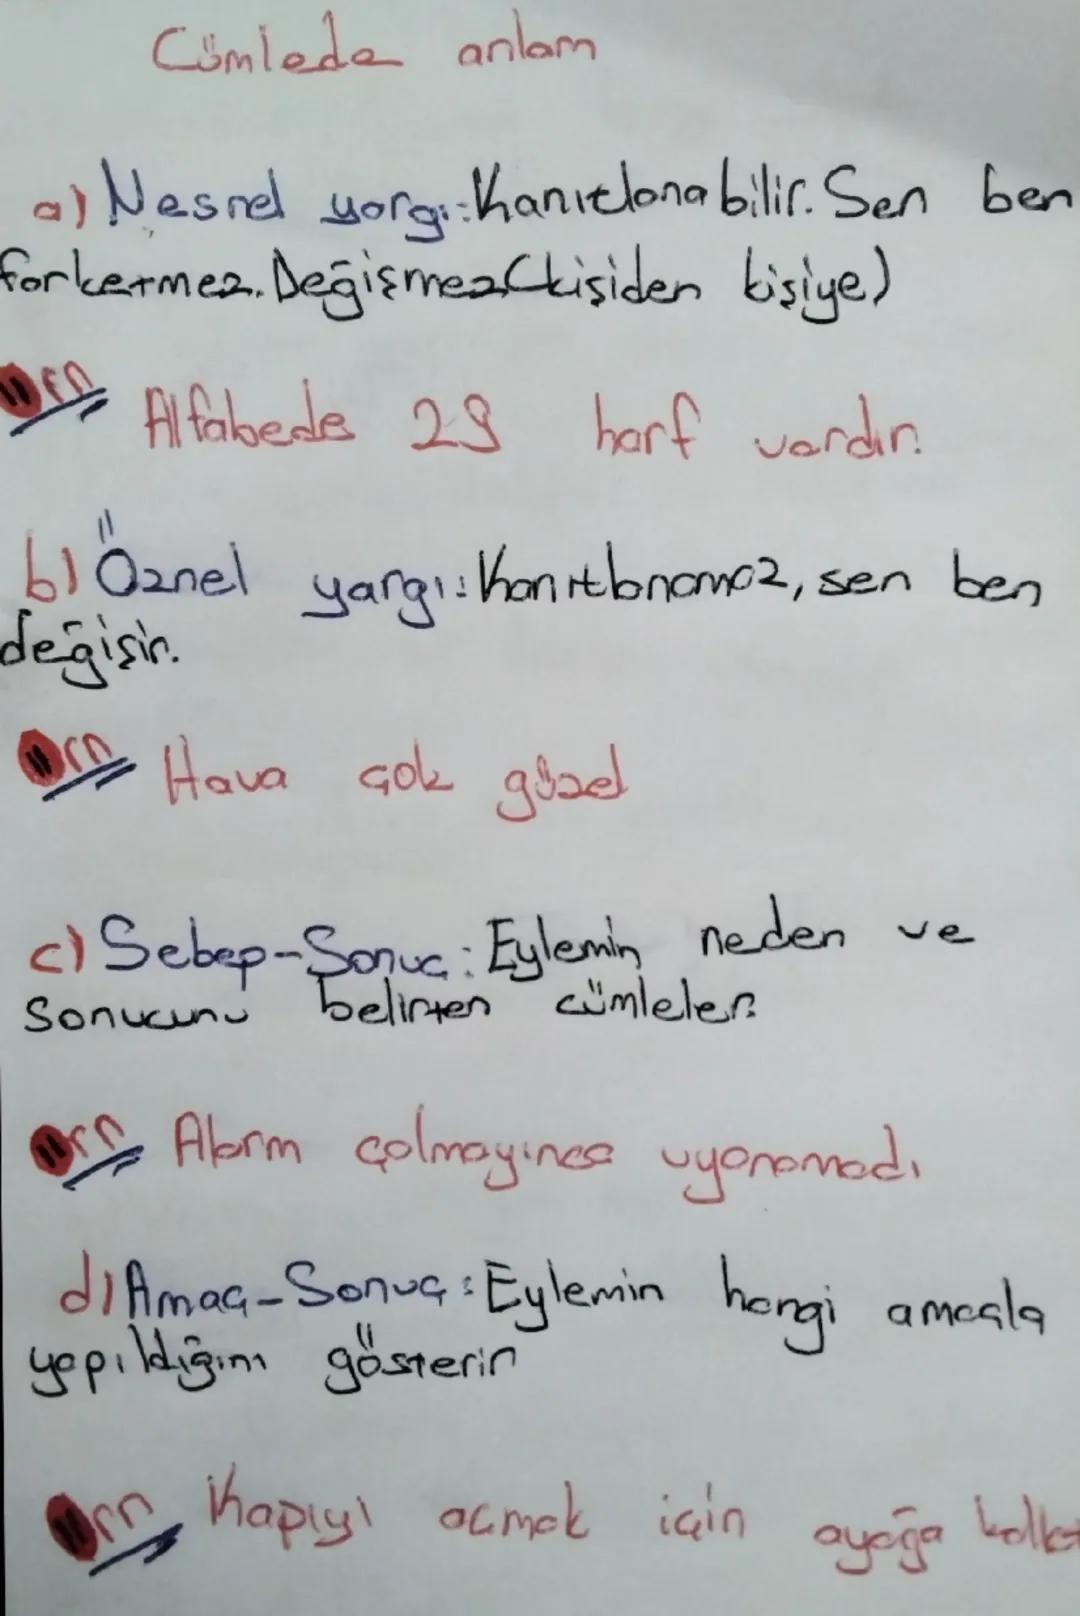 Cümlede anlam
a) Nesnel yargı: Kanıtlanabilir. Sen ben
farketmez. Değişmez (kişiden kişiye)
Örn Alfabede 29 harf vardır.
b) Öznel yargı: Kanıtlanamaz, sen ben
değişir.
Örn Hava çok güzel
c) Sebep-Sonuç: Eylemin neden ve
sonucunu belirten cümleler.
Örn Alarm çalmayınca uyanamadı
d) Amaç-Sonuç: Eylemin hangi amaçla
yapıldığını gösterir
Örn Kapıyı açmak için ayağa